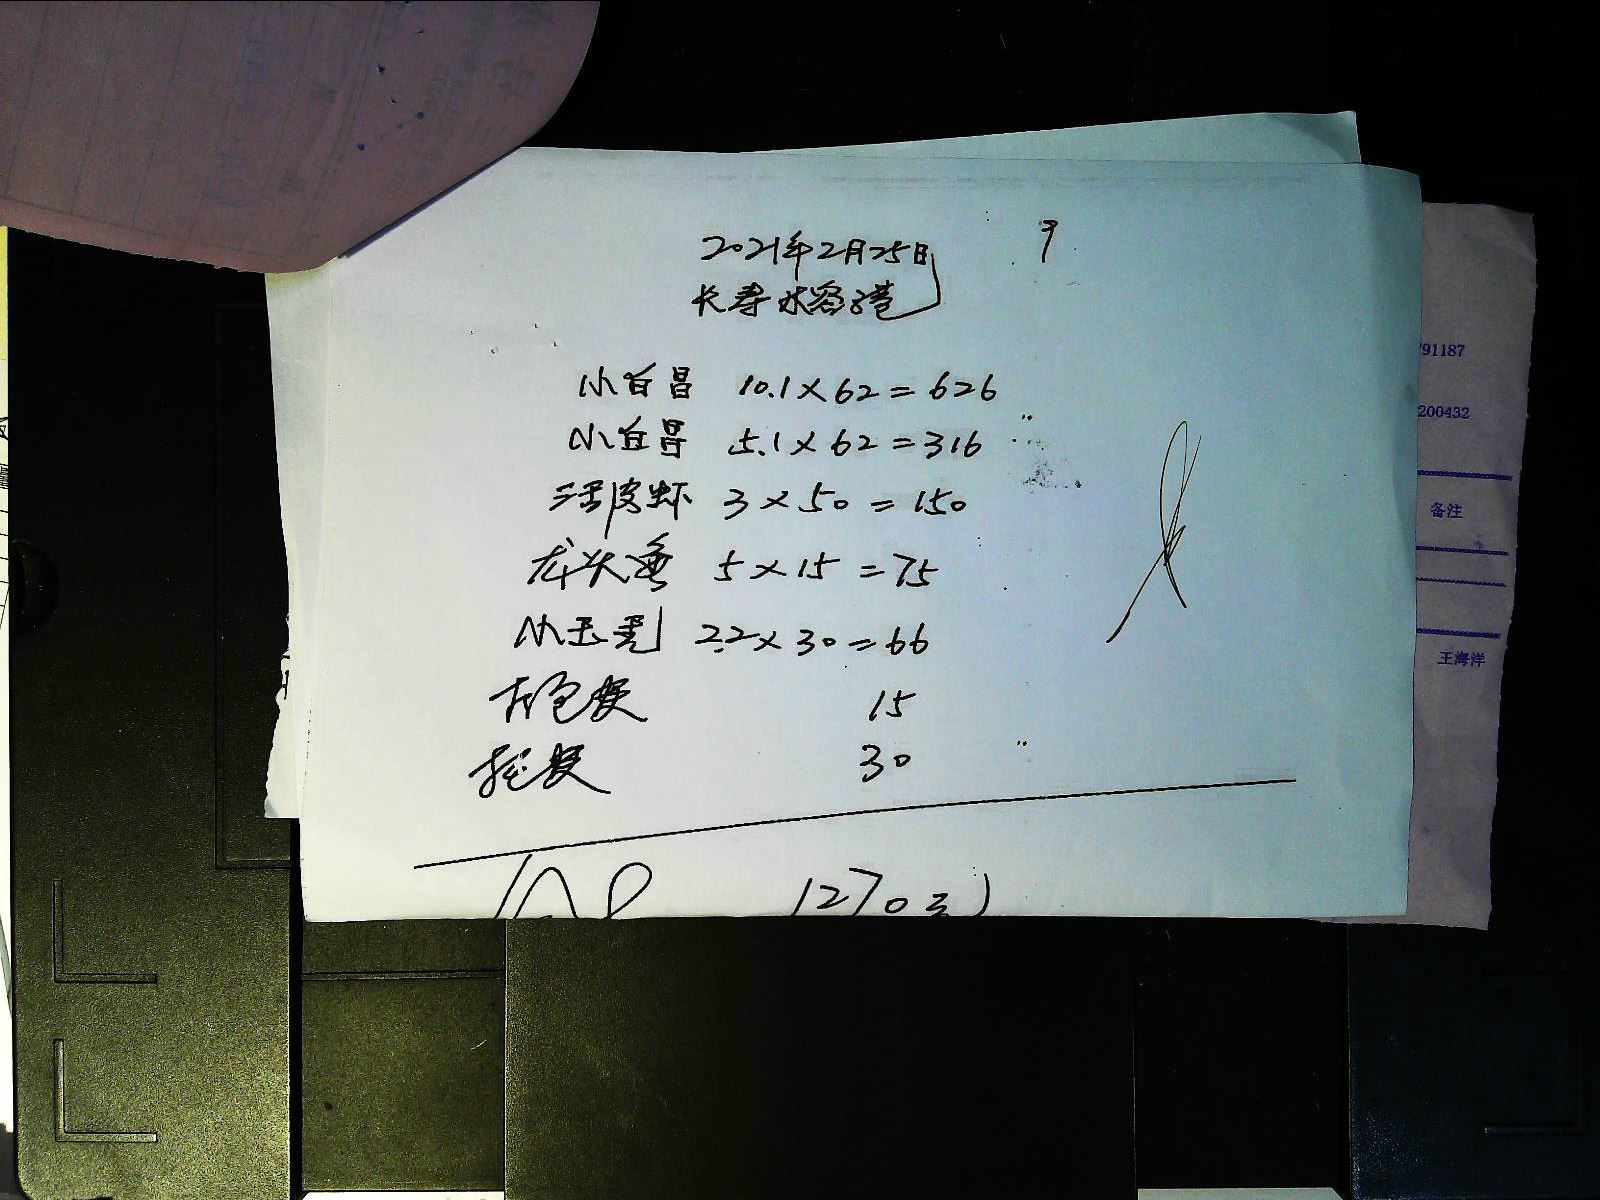 2021年2月25日
9
长寿水容港
小白昌 10.1×62=626
小白昌 5.1×62=316
活皮虾 3×50=150
龙头鱼 5×15=75
小玉秃 2.2×30=66
打包费 15
托费 30
1270元
791187
200432
备注
王海洋